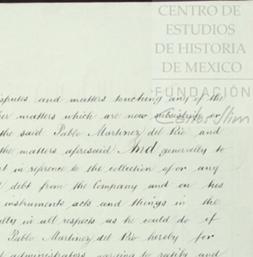 CENTRO DE
ESTUDIOS
DE HISTORIA
DE MEXICO
FUNDACIÓN
Carlos Slim
disputes and matters touching any of the
other matters which are now subsisting or
the said Pablo Martinez del Rio and
the matters aforesaid And generally to
in reference to the collection of or any
debt from the Company and on his
instruments acts and things in the
fully in all respects as he could do if
Pablo Martinez del Rio hereby for
administrators to ratify and